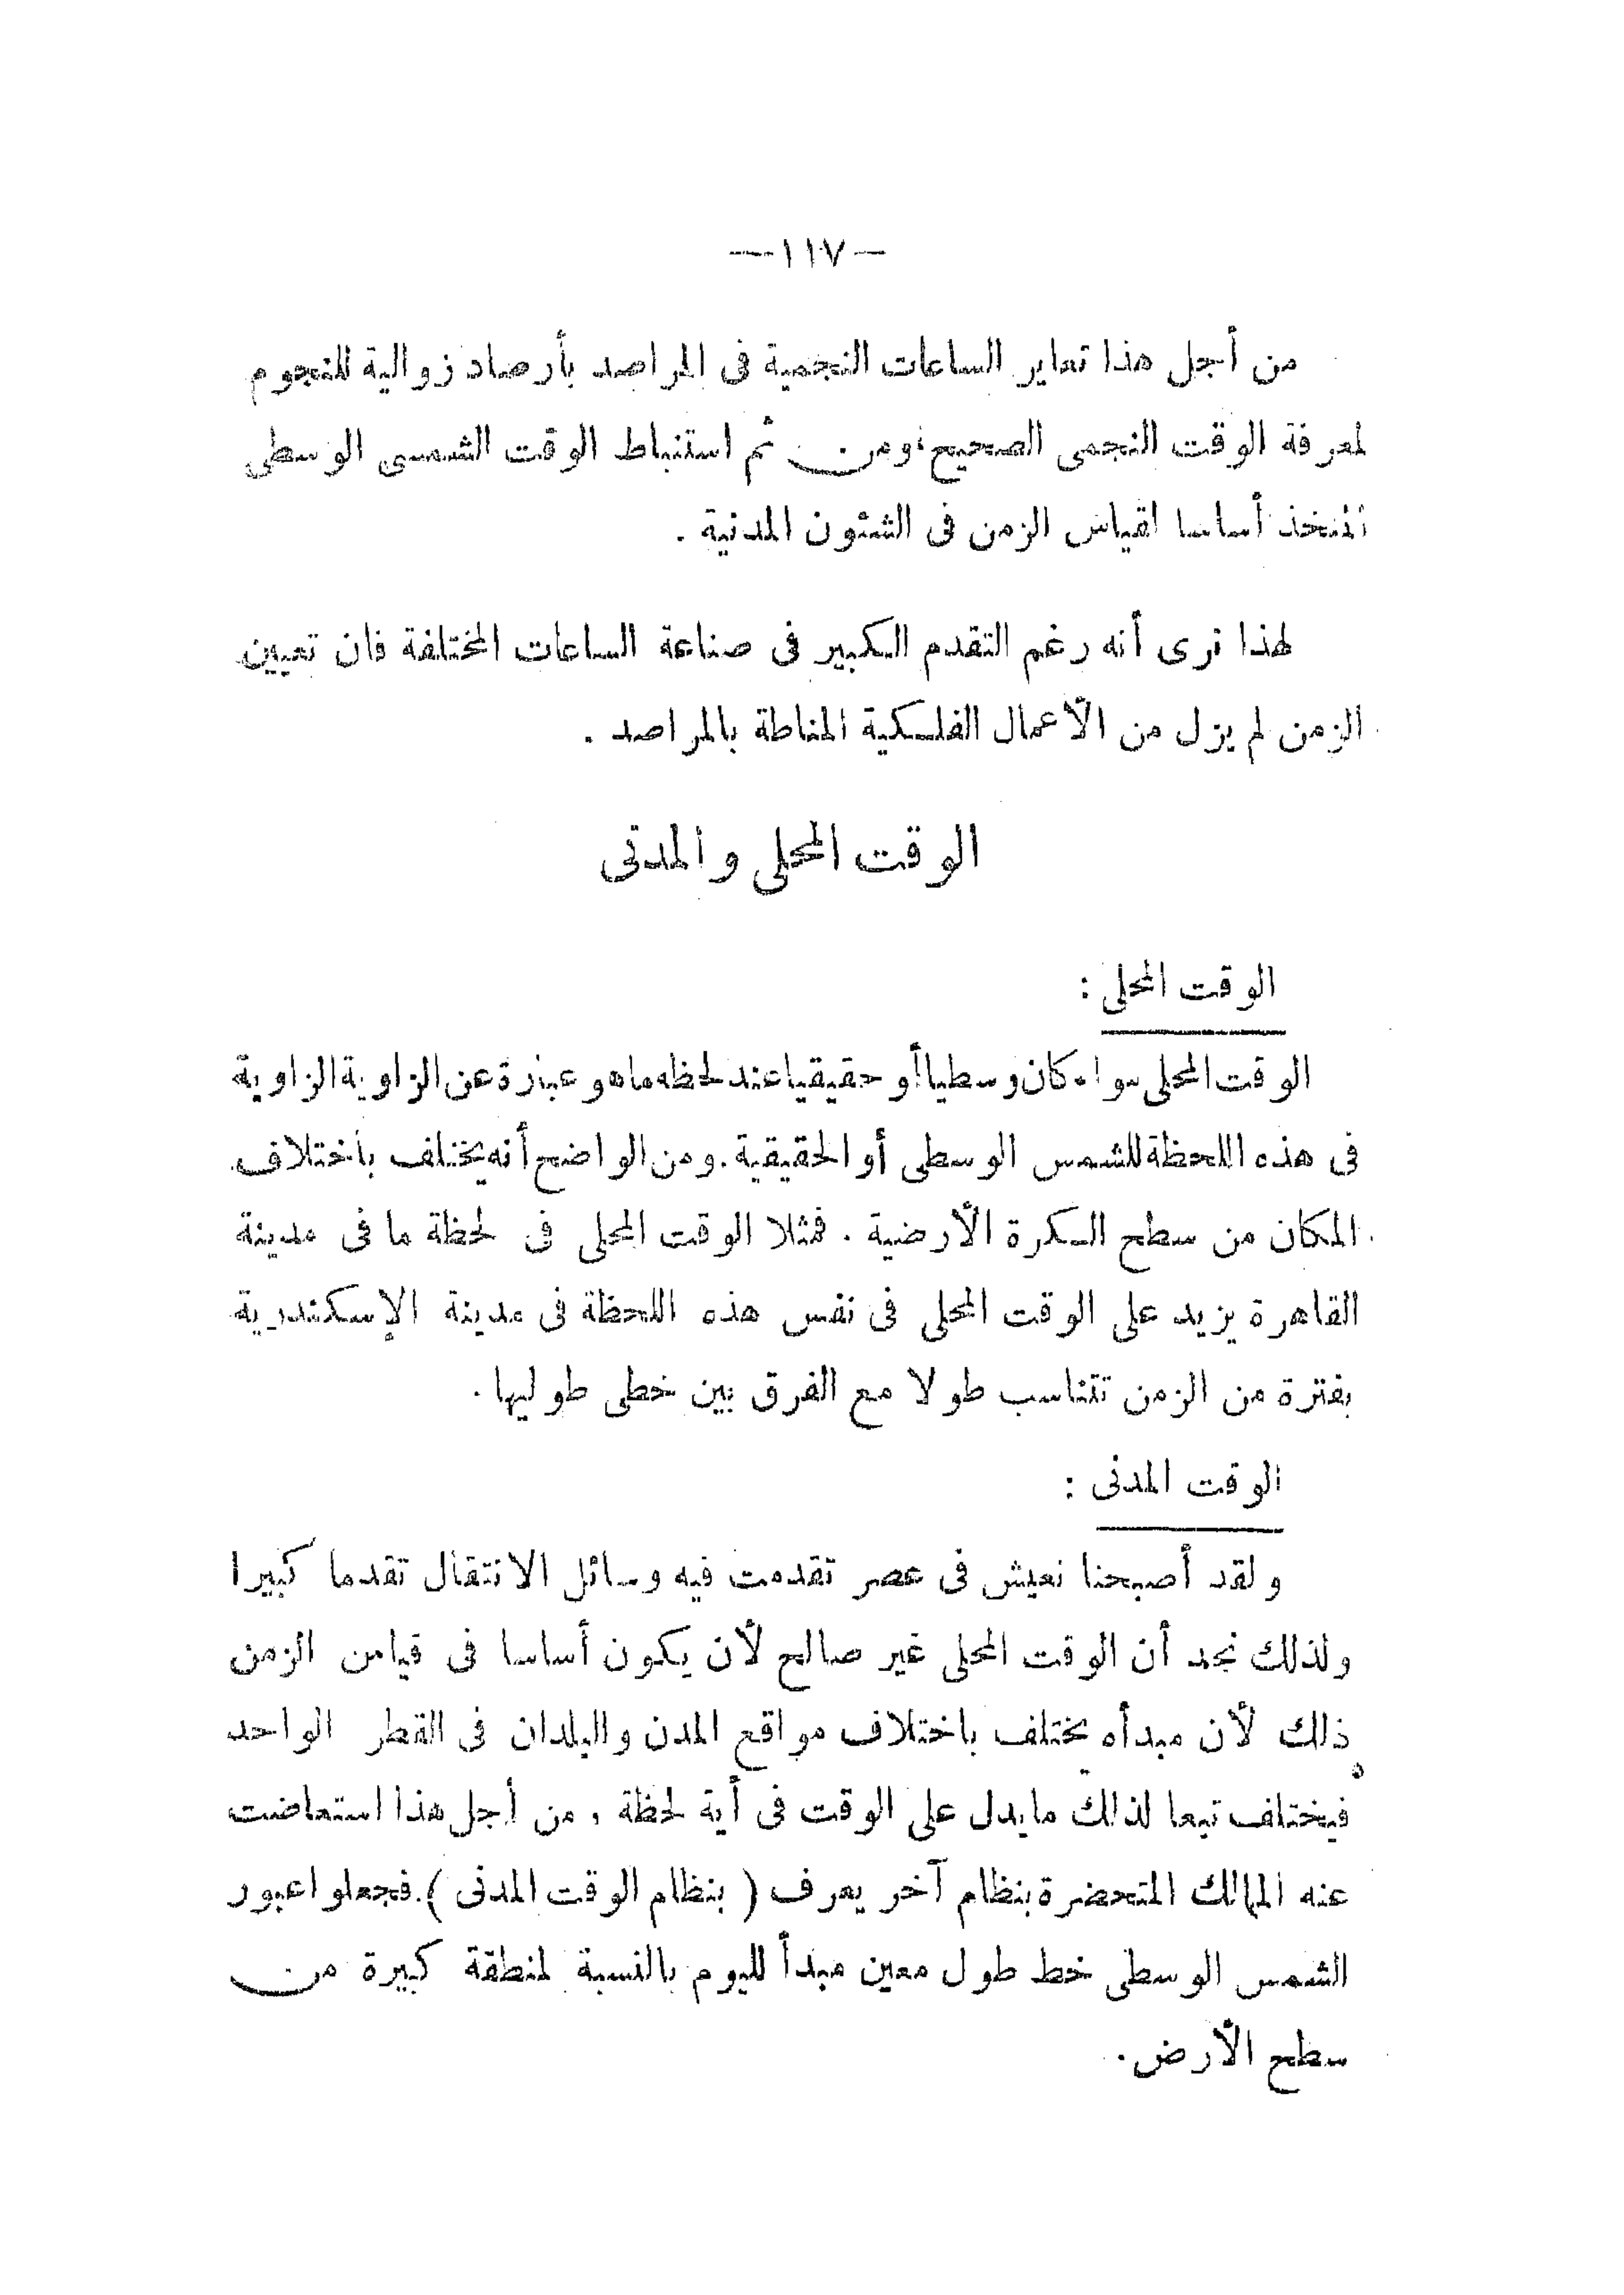 — ١١٧ —
من أجل هذا تعاير الساعات النجمية فى المراصد بأرصاد زوالية للنجوم
لمعرفة الوقت النجمى الصحيح ، ومن ثم استنباط الوقت الشمسى الوسطى
المتخذ أساسا لقياس الزمن فى الشئون المدنية .
لهذا نرى أنه رغم التقدم الكبير فى صناعة الساعات المختلفة فان تعيين
الزمن لم يزل من الأعمال الفلكية المناطة بالمراصد .
الوقت المحلى والمدنى
الوقت المحلى :
الوقت المحلى سواء كان وسطيا أو حقيقيا عند لحظه ما هو عبارة عن الزاوية الزاوية
فى هذه اللحظة للشمس الوسطى أو الحقيقية . ومن الواضح أنه يختلف باختلاف
المكان من سطح الكرة الأرضية . فمثلا الوقت المحلى فى لحظة ما فى مدينة
القاهرة يزيد على الوقت المحلى فى نفس هذه اللحظة فى مدينة الإسكندرية
بفترة من الزمن تتناسب طولا مع الفرق بين خطى طوليها .
الوقت المدنى :
ولقد أصبحنا نعيش فى عصر تقدمت فيه وسائل الانتقال تقدما كبيرا
ولذلك نجد أن الوقت المحلى غير صالح لأن يكون أساسا فى قياس الزمن
ذلك لأن مبدأه يختلف باختلاف مواقع المدن والبلدان فى القطر الواحد
فيختلف تبعا لذلك مايدل على الوقت فى أية لحظة ، من أجل هذا استعاضت
عنه الممالك المتحضرة بنظام آخر يعرف ( بنظام الوقت المدنى ) . فجعلوا عبور
الشمس الوسطى خط طول معين مبدأ لليوم بالنسبة لمنطقة كبيرة من
سطح الأرض .